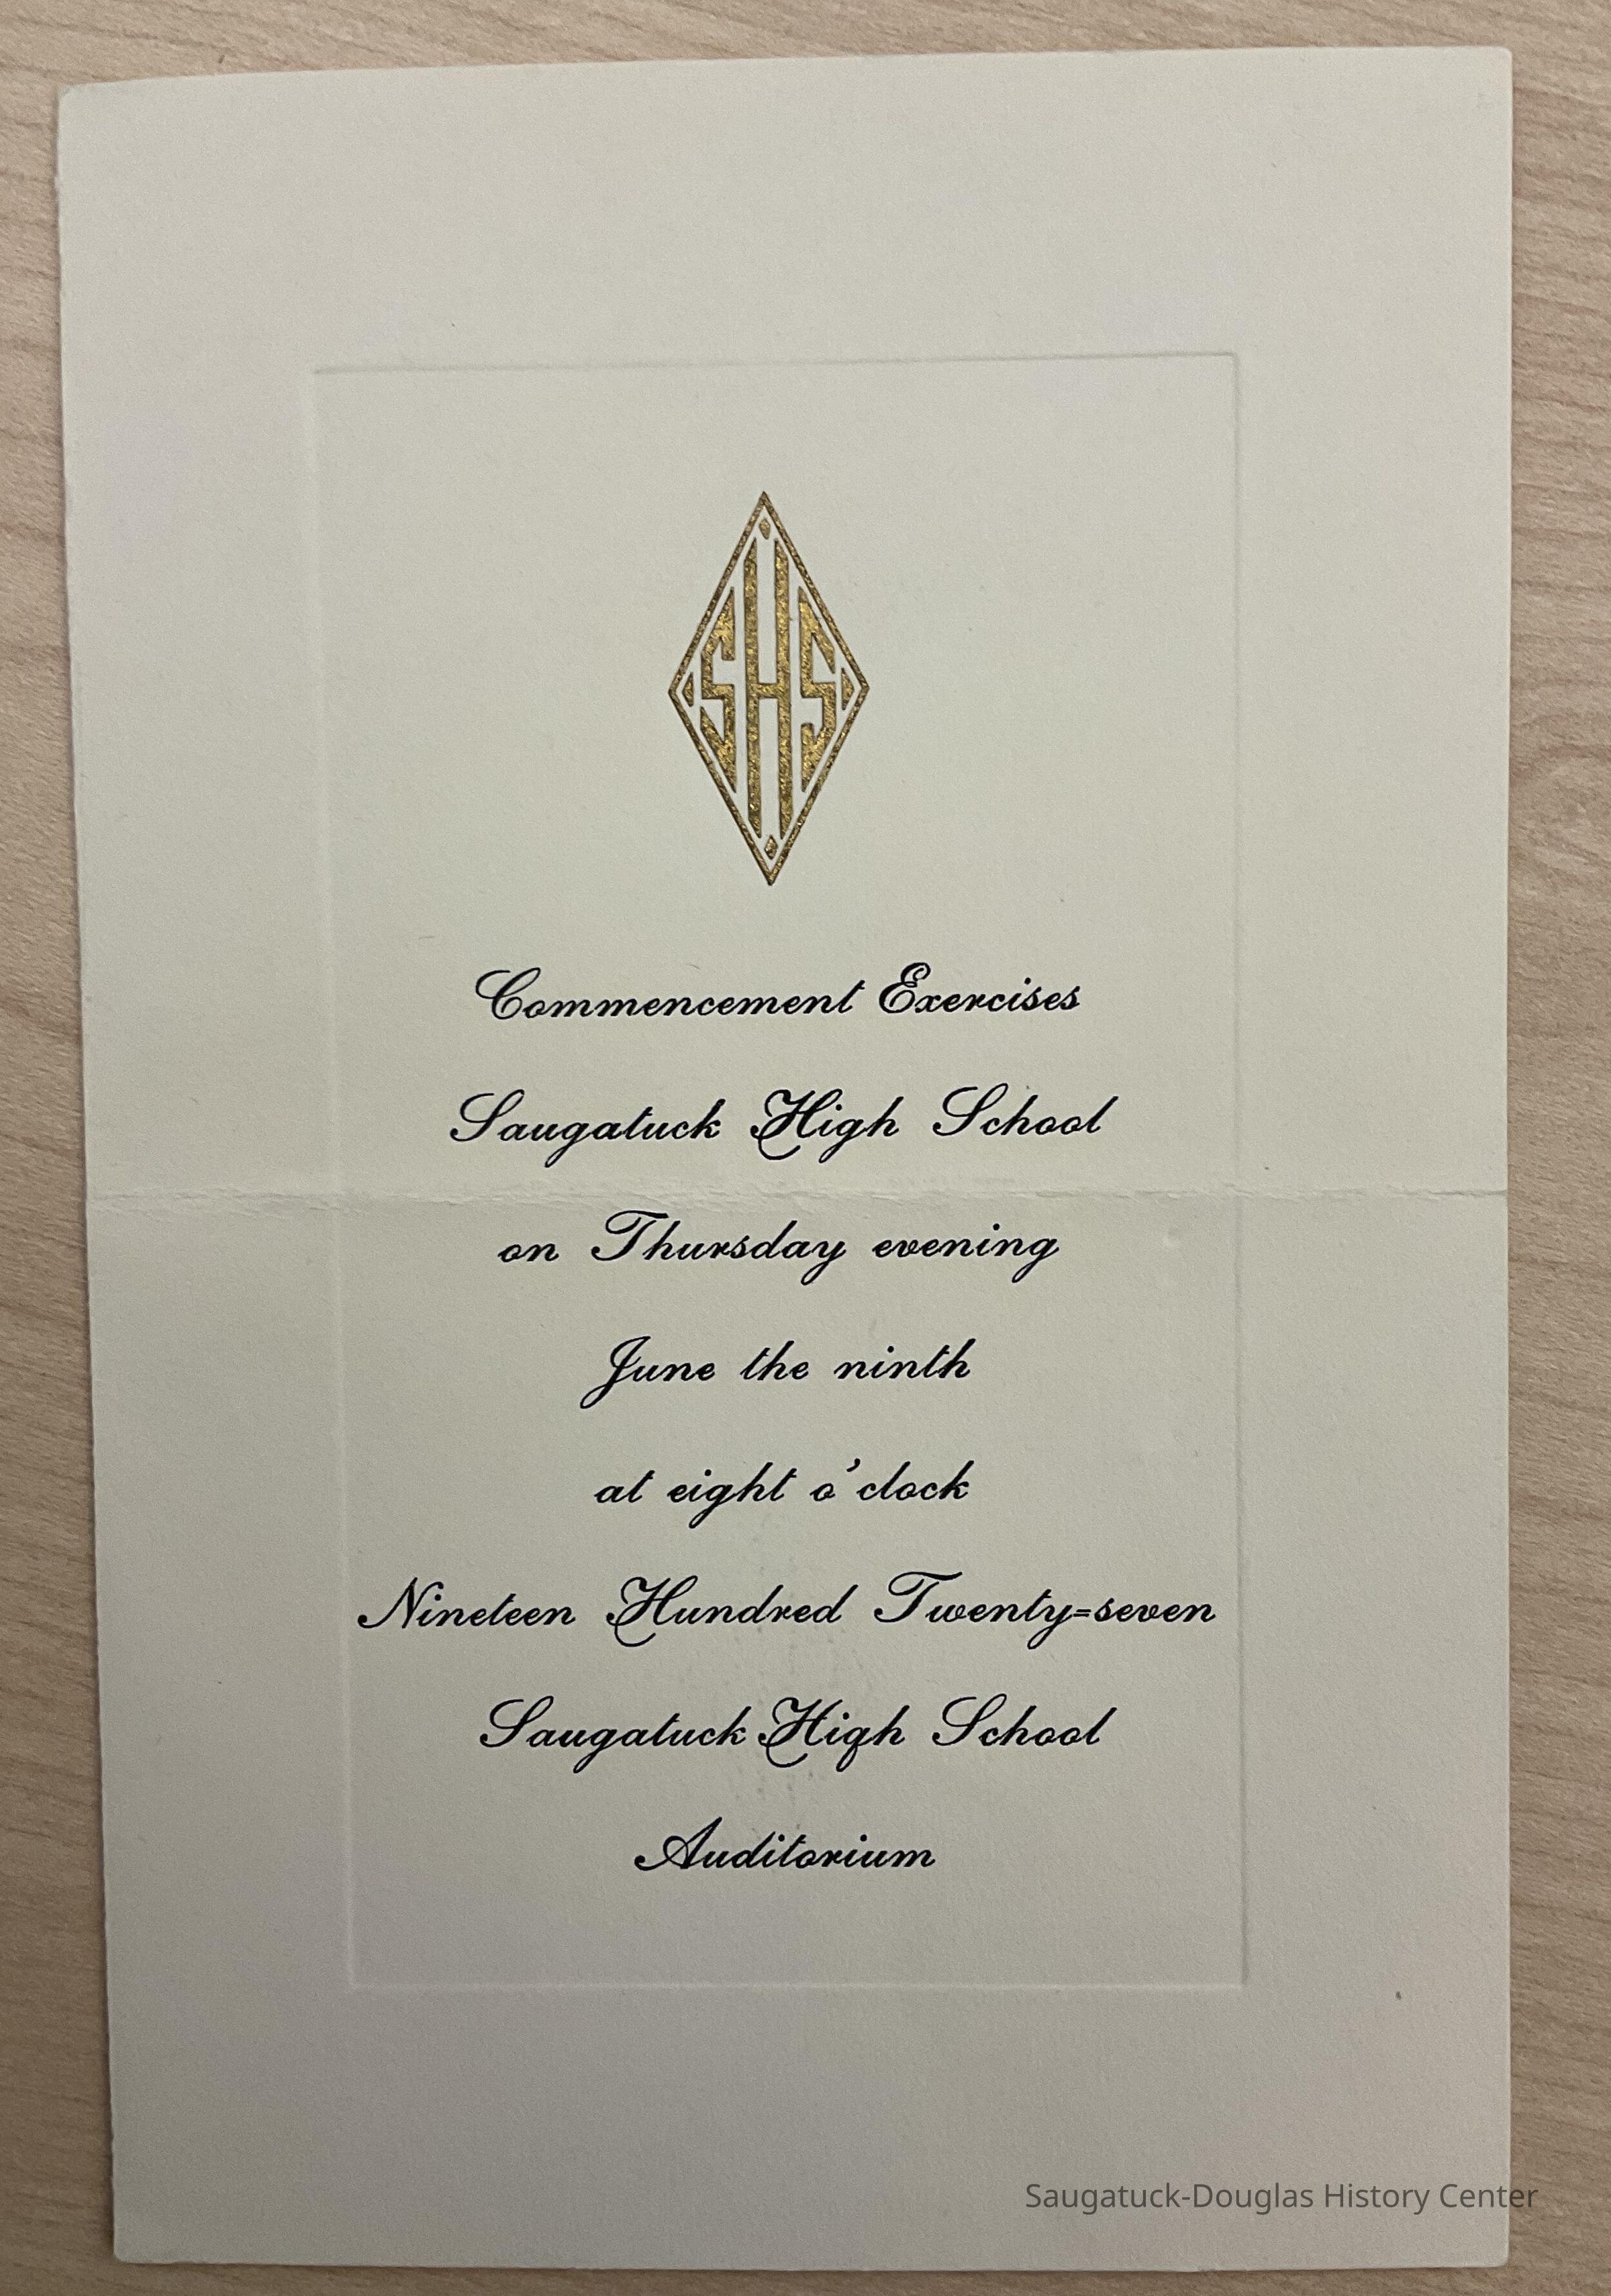 SHS
Commencement Exercises
Saugatuck High School
on Thursday evening
June the ninth
at eight o'clock
Nineteen Hundred Twenty=seven
Saugatuck High School
Auditorium
Saugatuck-Douglas History Center